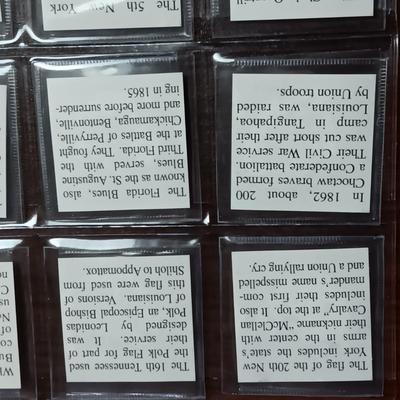 The flag of the 20th New
York includes the state's
arms in the center with
their nickname "McClellan
Cavalry" at the top. It also
includes their first com-
mander's name misspelled
and a Union rallying cry.
The 16th Tennessee used
the Polk Flag for part of
their service. It was
designed by Leonidas
Polk, an Episcopal Bishop
of Louisiana. Versions of
this flag were used from
Shiloh to Appomattox.
In 1862, about 200
Choctaw braves formed
a Confederate battalion.
Their Civil War service
was cut short after their
camp in Tangipahoa,
Louisiana, was raided
by Union troops.
The Florida Blues, also
known as the St. Augustine
Blues, served with the
Third Florida. They fought
at the Battles of Perryville,
Chickamauga, Bentonville,
and more before surrender-
ing in 1865.
The 5th New York